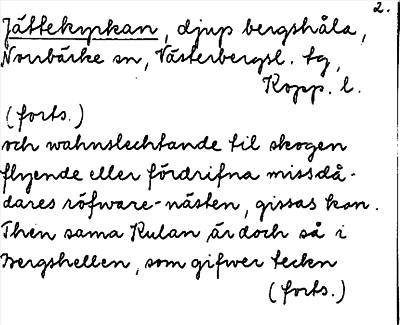 2.
Jättekyrkan, djup bergshåla,
Norrbärke sn, Västerbergsl. tg,
Kopp. l.
(forts.)
och wahnslechtande til skogen
flyende eller fördrifna missdå-
dares röfware-nästen, gissas kan.
Then sama Kulan är doch så i
Bergshellen, som gifwer tecкn
(forts.)